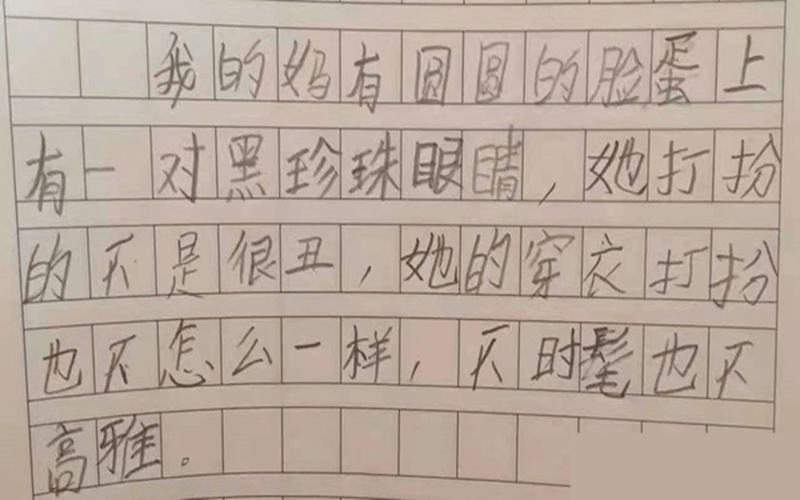 我的妈有圆圆的脸蛋上
有一对黑珍珠眼睛，她打扮
的不是很丑，她的穿衣打扮
也不怎么一样，不时髦也不
高雅。